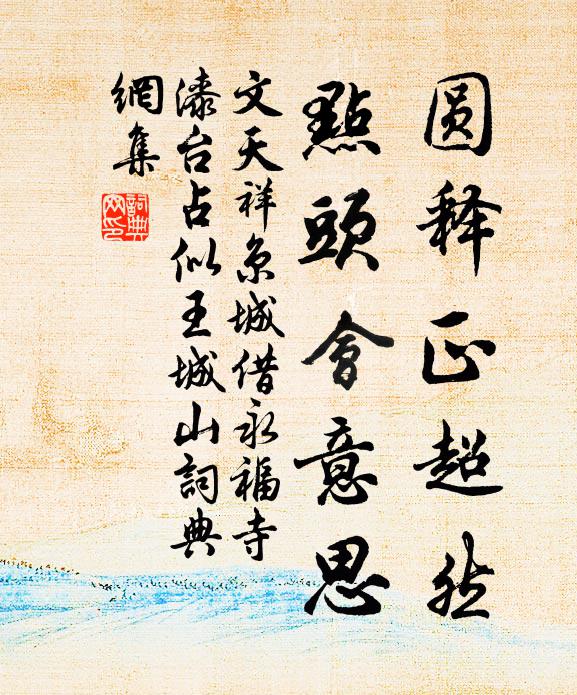 圆释正超然
點頭會意思
文天祥京城借永福寺
漆台占似王城山詞典
網集
詞典
网印